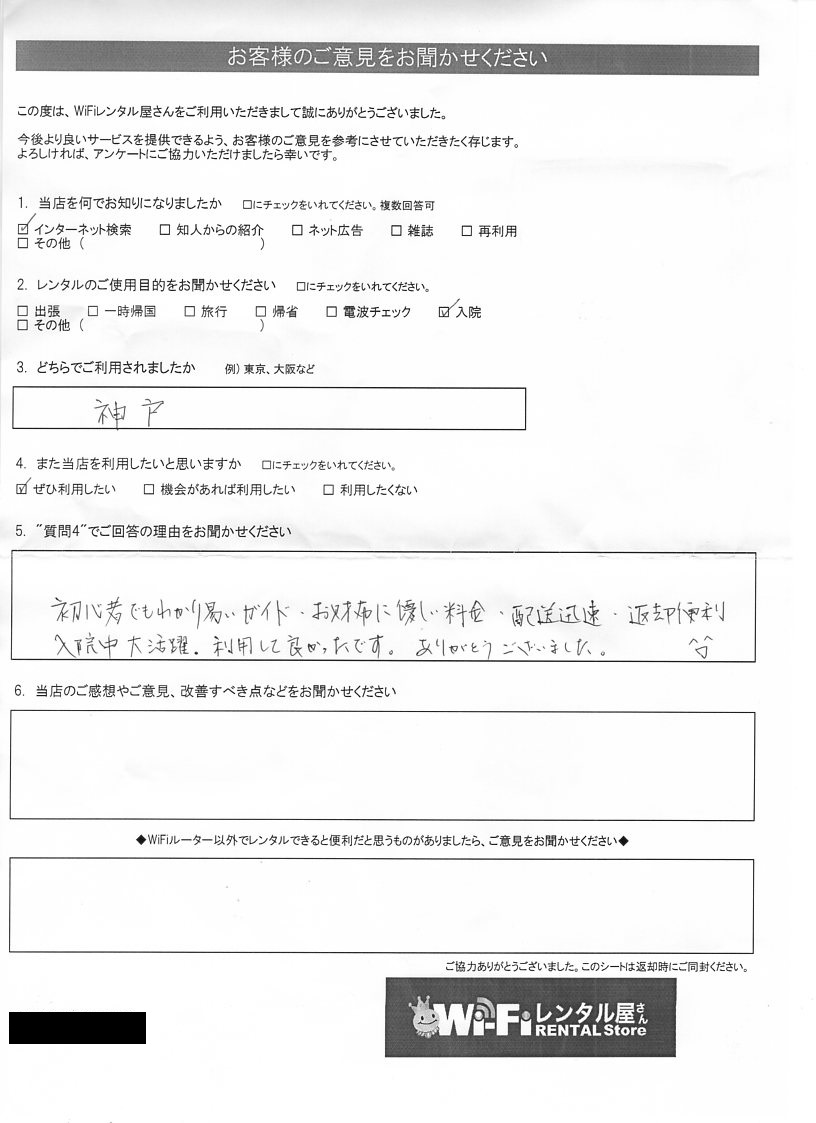 お客様のご意見をお聞かせください
この度は、WiFiレンタル屋さんをご利用いただきまして誠にありがとうございました。
今後より良いサービスを提供できるよう、お客様のご意見を参考にさせていただきたく存じます。
よろしければ、アンケートにご協力いただけましたら幸いです。
1. 当店を何でお知りになりましたか □にチェックをいれてください。複数回答可
☑ インターネット検索 □ 知人からの紹介 □ ネット広告 □ 雑誌 □ 再利用
□ その他 ( )
2. レンタルのご使用目的をお聞かせください □にチェックをいれてください。
□ 出張 □ 一時帰国 □ 旅行 □ 帰省 □ 電波チェック ☑ 入院
□ その他 ( )
3. どちらでご利用されましたか 例) 東京、大阪など
神戸
4. また当店を利用したいと思いますか □にチェックをいれてください。
☑ ぜひ利用したい □ 機会があれば利用したい □ 利用したくない
5. "質問4"でご回答の理由をお聞かせください
初心者でもわかり易いガイド・お財布に優しい料金・配送迅速・返却便利
入院中大活躍。利用して良かったです。ありがとうございました。 ^^
6. 当店のご感想やご意見、改善すべき点などをお聞かせください
◆WiFiルーター以外でレンタルできると便利だと思うものがありましたら、ご意見をお聞かせください◆
ご協力ありがとうございました。このシートは返却時にご同封ください。
Wi-Fiレンタル屋さん
RENTAL Store